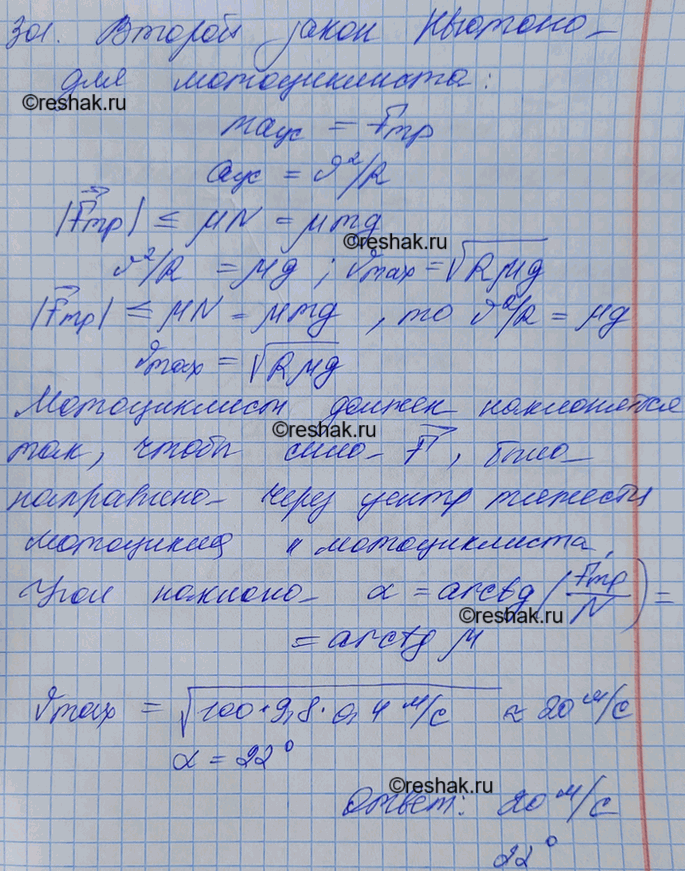 301. Второй закон Ньютона
для мотоциклиста:
©reshak.ru
maцс = Fтр
aцс = v²/R
|F⃗тр| ≤ μN = μmg
©reshak.ru
v²/R = μg ; vmax = √Rμg
|F⃗тр| ≤ μN = μmg , то v²/R = μg
vmax = √Rμg
Мотоциклист должен наклоняться
©reshak.ru
так, чтобы сила F⃗, была
направлена через центр тяжести
мотоцикла и мотоциклиста,
Угол наклона α = arcctg (Fтр/N) =
©reshak.ru
= arctg μ
vmax = √100·9,8·0,4 м/с ≈ 20 м/с
α = 22°
©reshak.ru
Ответ: 20 м/с
22°